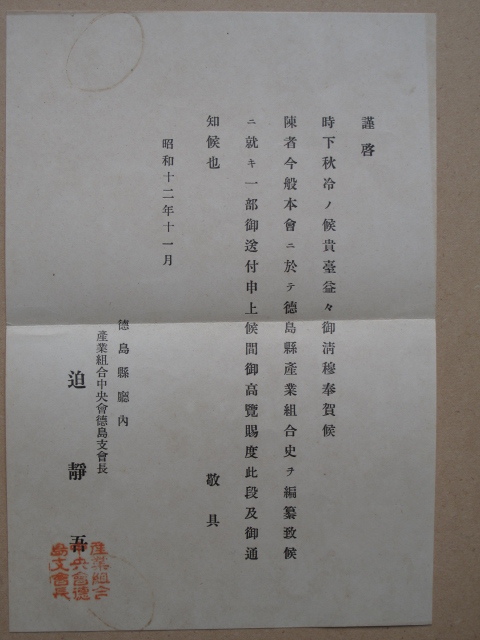 謹啓
時下秋冷ノ候貴臺益々御淸穆奉賀候
陳者今般本會ニ於テ德島縣產業組合史ヲ編纂致候
ニ就キ一部御送付申上候間御高覽賜度此段及御通
知候也
敬具
昭和十二年十一月
德島縣廳內
產業組合中央會德島支會長
迫靜吾
產業組合
中央會德
島支會長